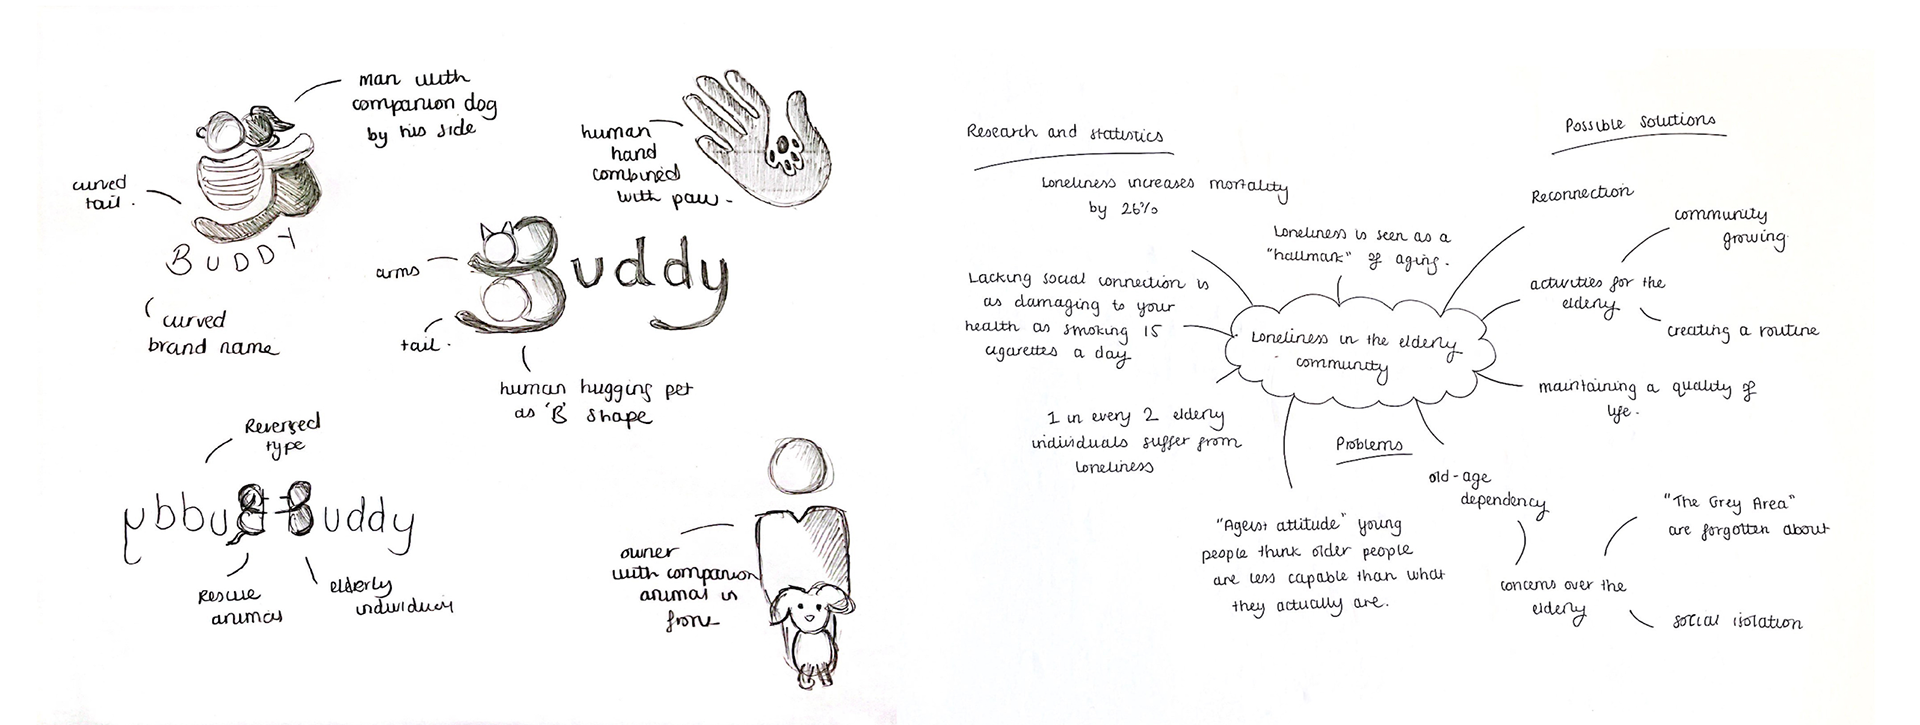 man with
companion dog
by his side
curved
tail.
BUDDY
curved
brand name
human
hand
combined
with paw.
arms
Buddy
tail.
human hugging pet
as 'B' shape
Reversed
type
ybbuB Buddy
rescue
animal
elderly
individual
owner
with companion
animal in
front
Research and statistics
Loneliness increases mortality
by 26%
Loneliness is seen as a
"hallmark" of aging.
Lacking social connection is
as damaging to your
health as smoking 15
cigarettes a day
1 in every 2 elderly
individuals suffer from
loneliness
Loneliness in the elderly
community
Possible solutions
Reconnection
community
growing
activities for the
elderly
creating a routine
maintaining a quality of
life.
Problems
old-age
dependency
"The Grey Area"
are forgotten about
concerns over the
elderly
social isolation
"Ageist attitude" young
people think older people
are less capable than what
they actually are.